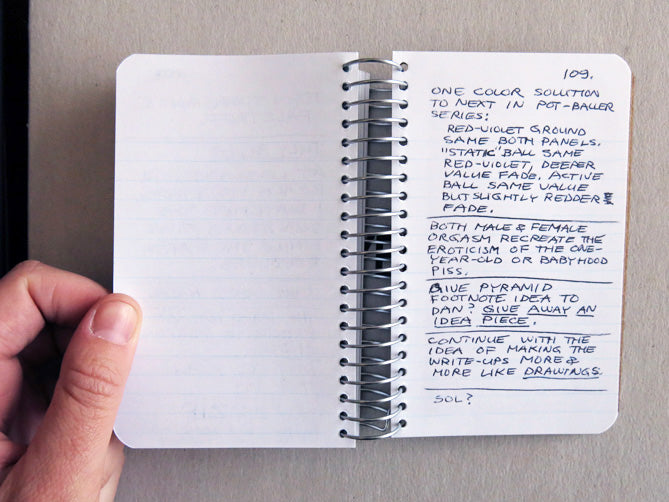 109.
ONE COLOR SOLUTION
TO NEXT IN POT-BALLER
SERIES:
RED-VIOLET GROUND
SAME BOTH PANELS.
"STATIC" BALL SAME
RED-VIOLET, DEEPER
VALUE FADE. ACTIVE
BALL SAME VALUE
BUT SLIGHTLY REDDER
FADE.
BOTH MALE & FEMALE
ORGASM RECREATE THE
EROTICISM OF THE ONE-
YEAR-OLD OR BABYHOOD
PISS.
GIVE PYRAMID
FOOTNOTE IDEA TO
DAN? GIVE AWAY AN
IDEA PIECE.
CONTINUE WITH THE
IDEA OF MAKING THE
WRITE-UPS MORE &
MORE LIKE DRAWINGS.
SOL?